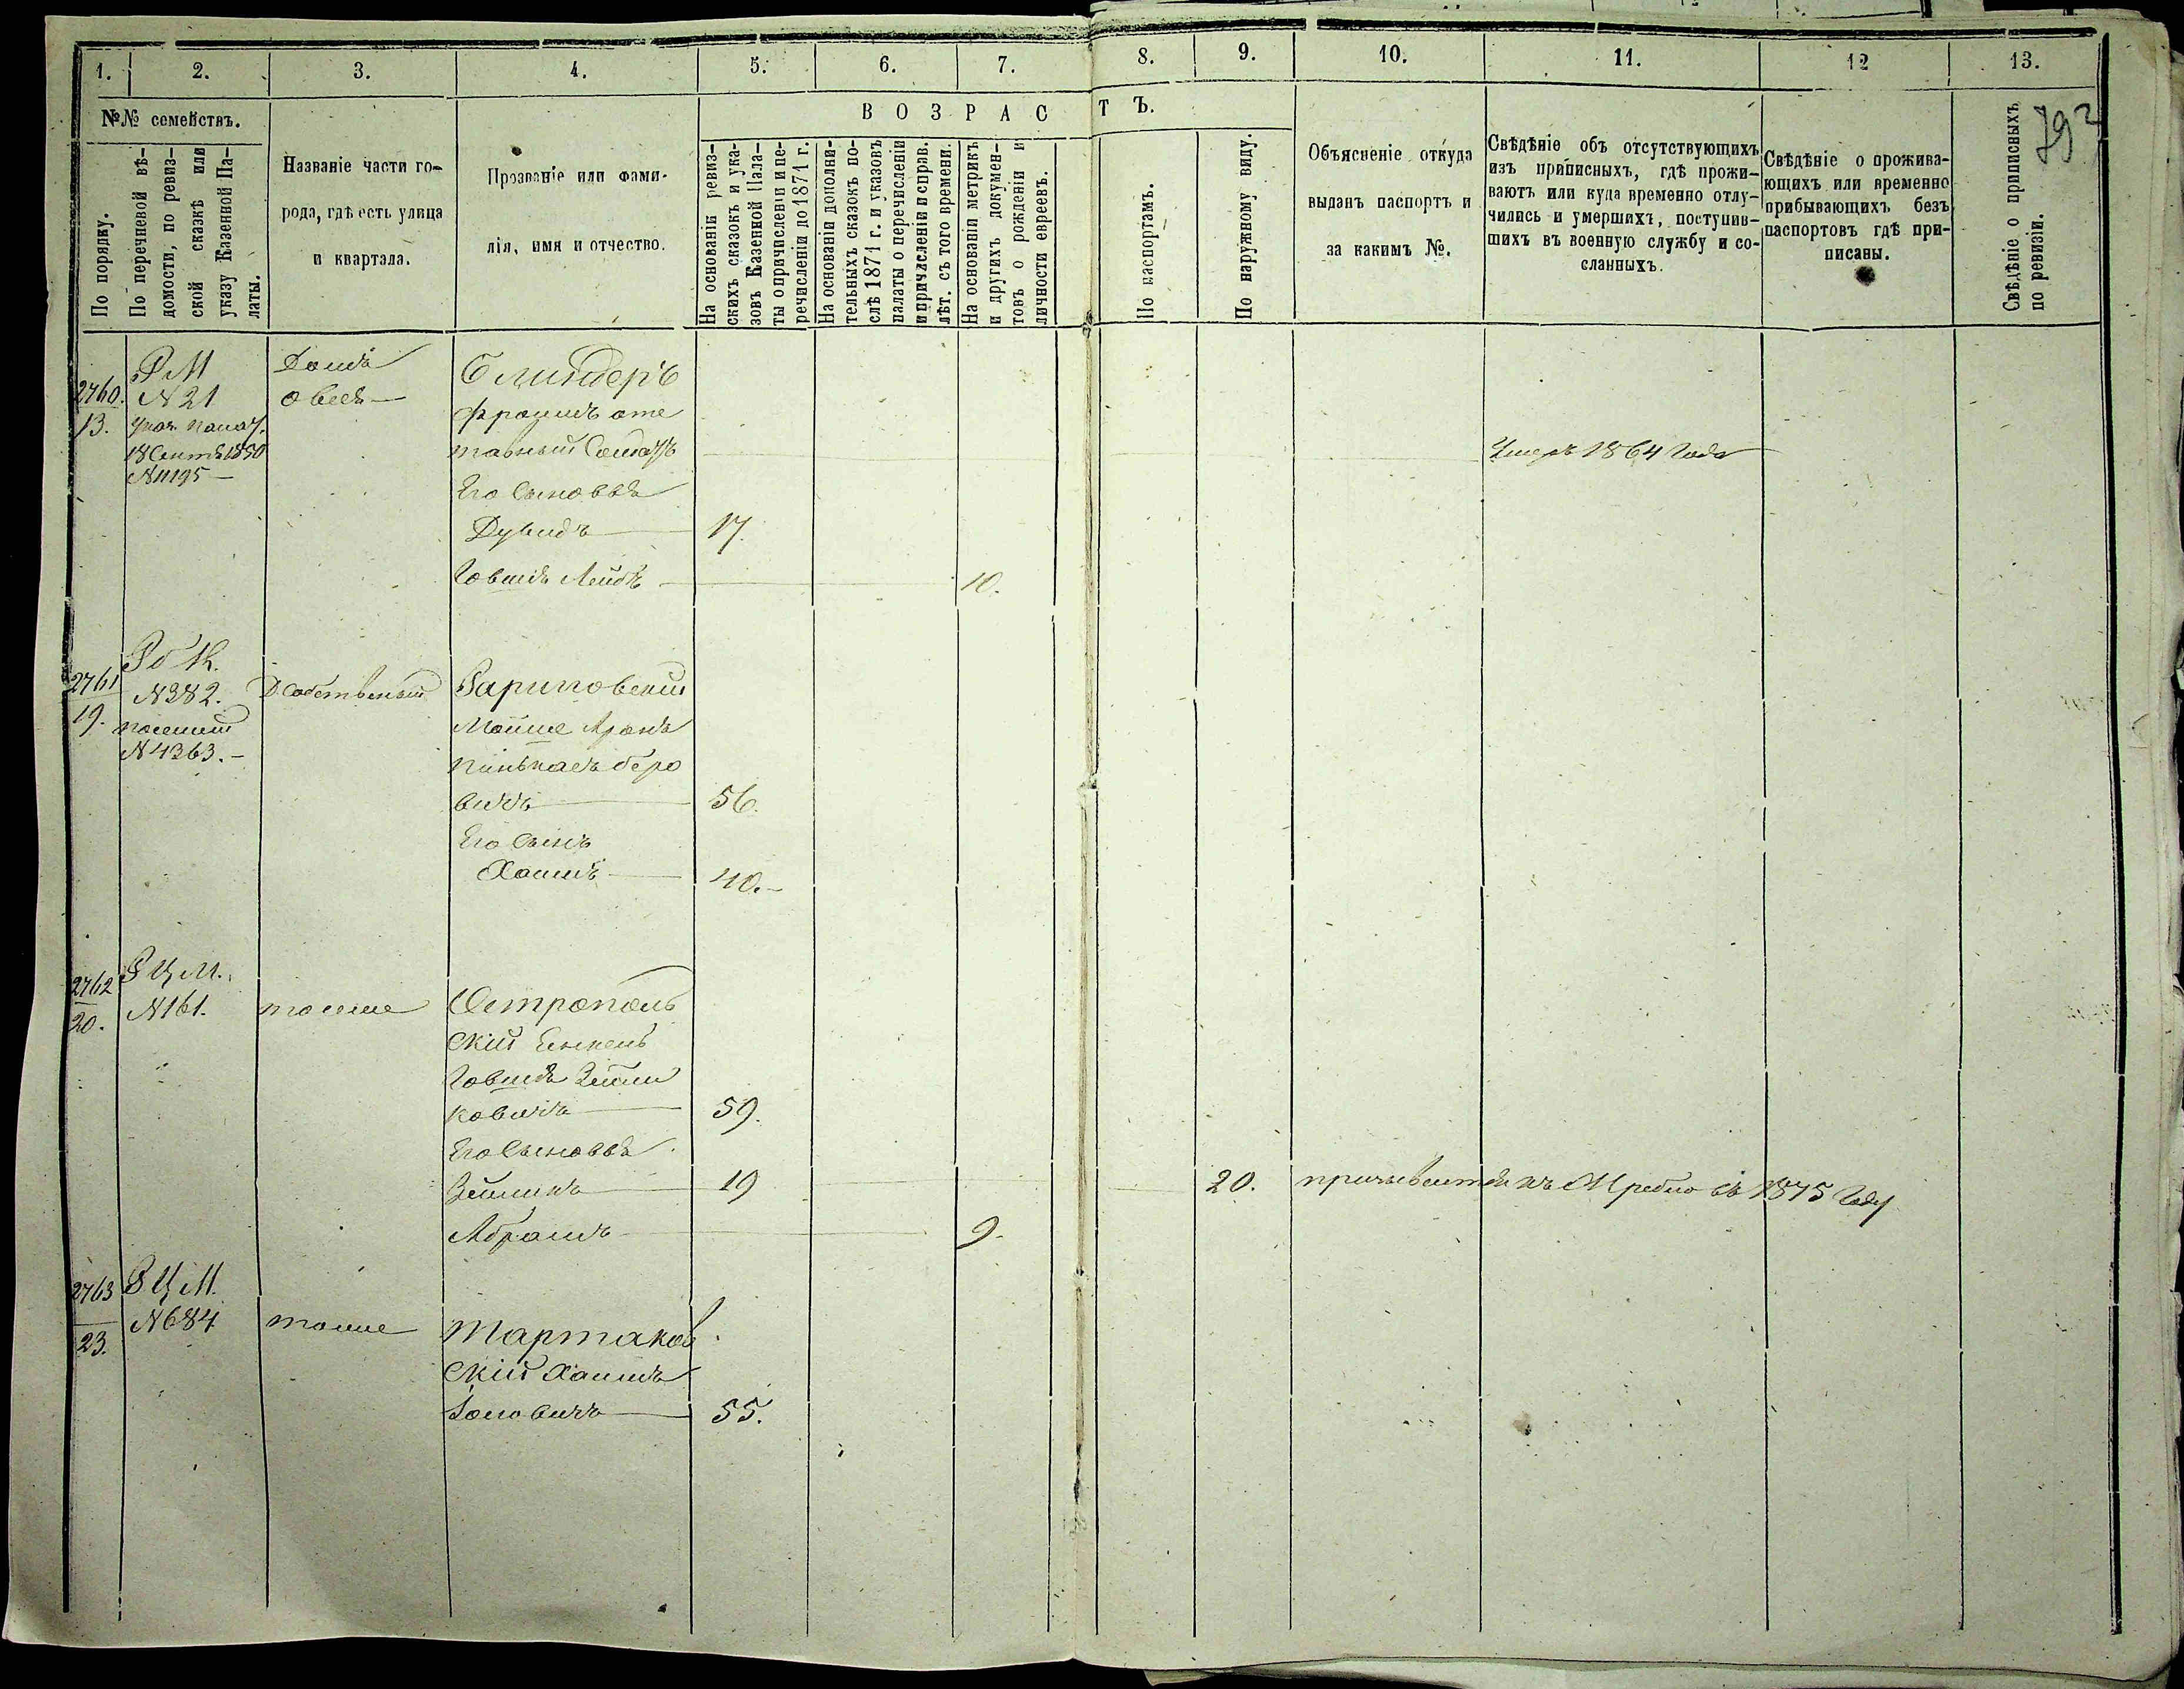 1. 2. 3. 4. 5. 6. 7. 8. 9. 10. 11. 12 13.
№№ семействъ.
По порядку.
По перечневой вѣ-
домости, по ревиз-
ской сказкѣ или
указу Казенной Па-
латы.
Названіе части го-
рода, гдѣ есть улица
и квартала.
Прозваніе или фами-
лія, имя и отчество.
ВОЗРАСТЪ.
На основаніи ревиз-
скихъ сказокъ и ука-
зовъ Казенной Пала-
ты о причисленіи и пе-
речисленіи до 1871 г.
На основаніи дополни-
тельныхъ сказокъ по-
слѣ 1871 г. и указовъ
палаты о перечисленіи
и причисленіи и справ.
лѣт. съ того времени.
На основаніи метрикъ
и другихъ докумен-
товъ о рожденіи и
личности евреевъ.
По паспортамъ.
По наружному виду.
Объясненіе откуда
выданъ паспортъ и
за какимъ №.
Свѣдѣніе объ отсутствующихъ
изъ приписныхъ, гдѣ прожи-
ваютъ или куда временно отлу-
чились и умершихъ, поступив-
шихъ въ военную службу и со-
сланныхъ.
Свѣдѣніе о прожива-
ющихъ или временно
прибывающихъ безъ
паспортовъ гдѣ при-
писаны.
Свѣдѣніе о приписныхъ
по ревизіи.
793
2760.
13.
РМ
N 21
18 Сентяб 1850
N 11195
Домъ
Блиндеръ
Фроимъ отс
тавный Солдатъ
Умеръ 1864 Года
Его Сыновья
Дувидъ 17.
Іовшія Лейбъ 10.
2761
19.
N 382.
N 4363.
Д Собственный
Гариповскій
Мойше Аронъ
Пинькасъ беро
вичъ 56.
Его Сынъ
Хаимъ 40.
2762
20.
РЦМ.
N 161.
тоже
Острополь
скій Енкель
Іовшія Зейли
ковичъ 59.
Его Сыновья
Зейликъ 19 20. призывается къ Жребію въ 1875 Году
Абрамъ 9.
2763
23.
РЦМ.
N 684
тоже
Тартаков
скій Хаимъ
Іосіовичъ 55.